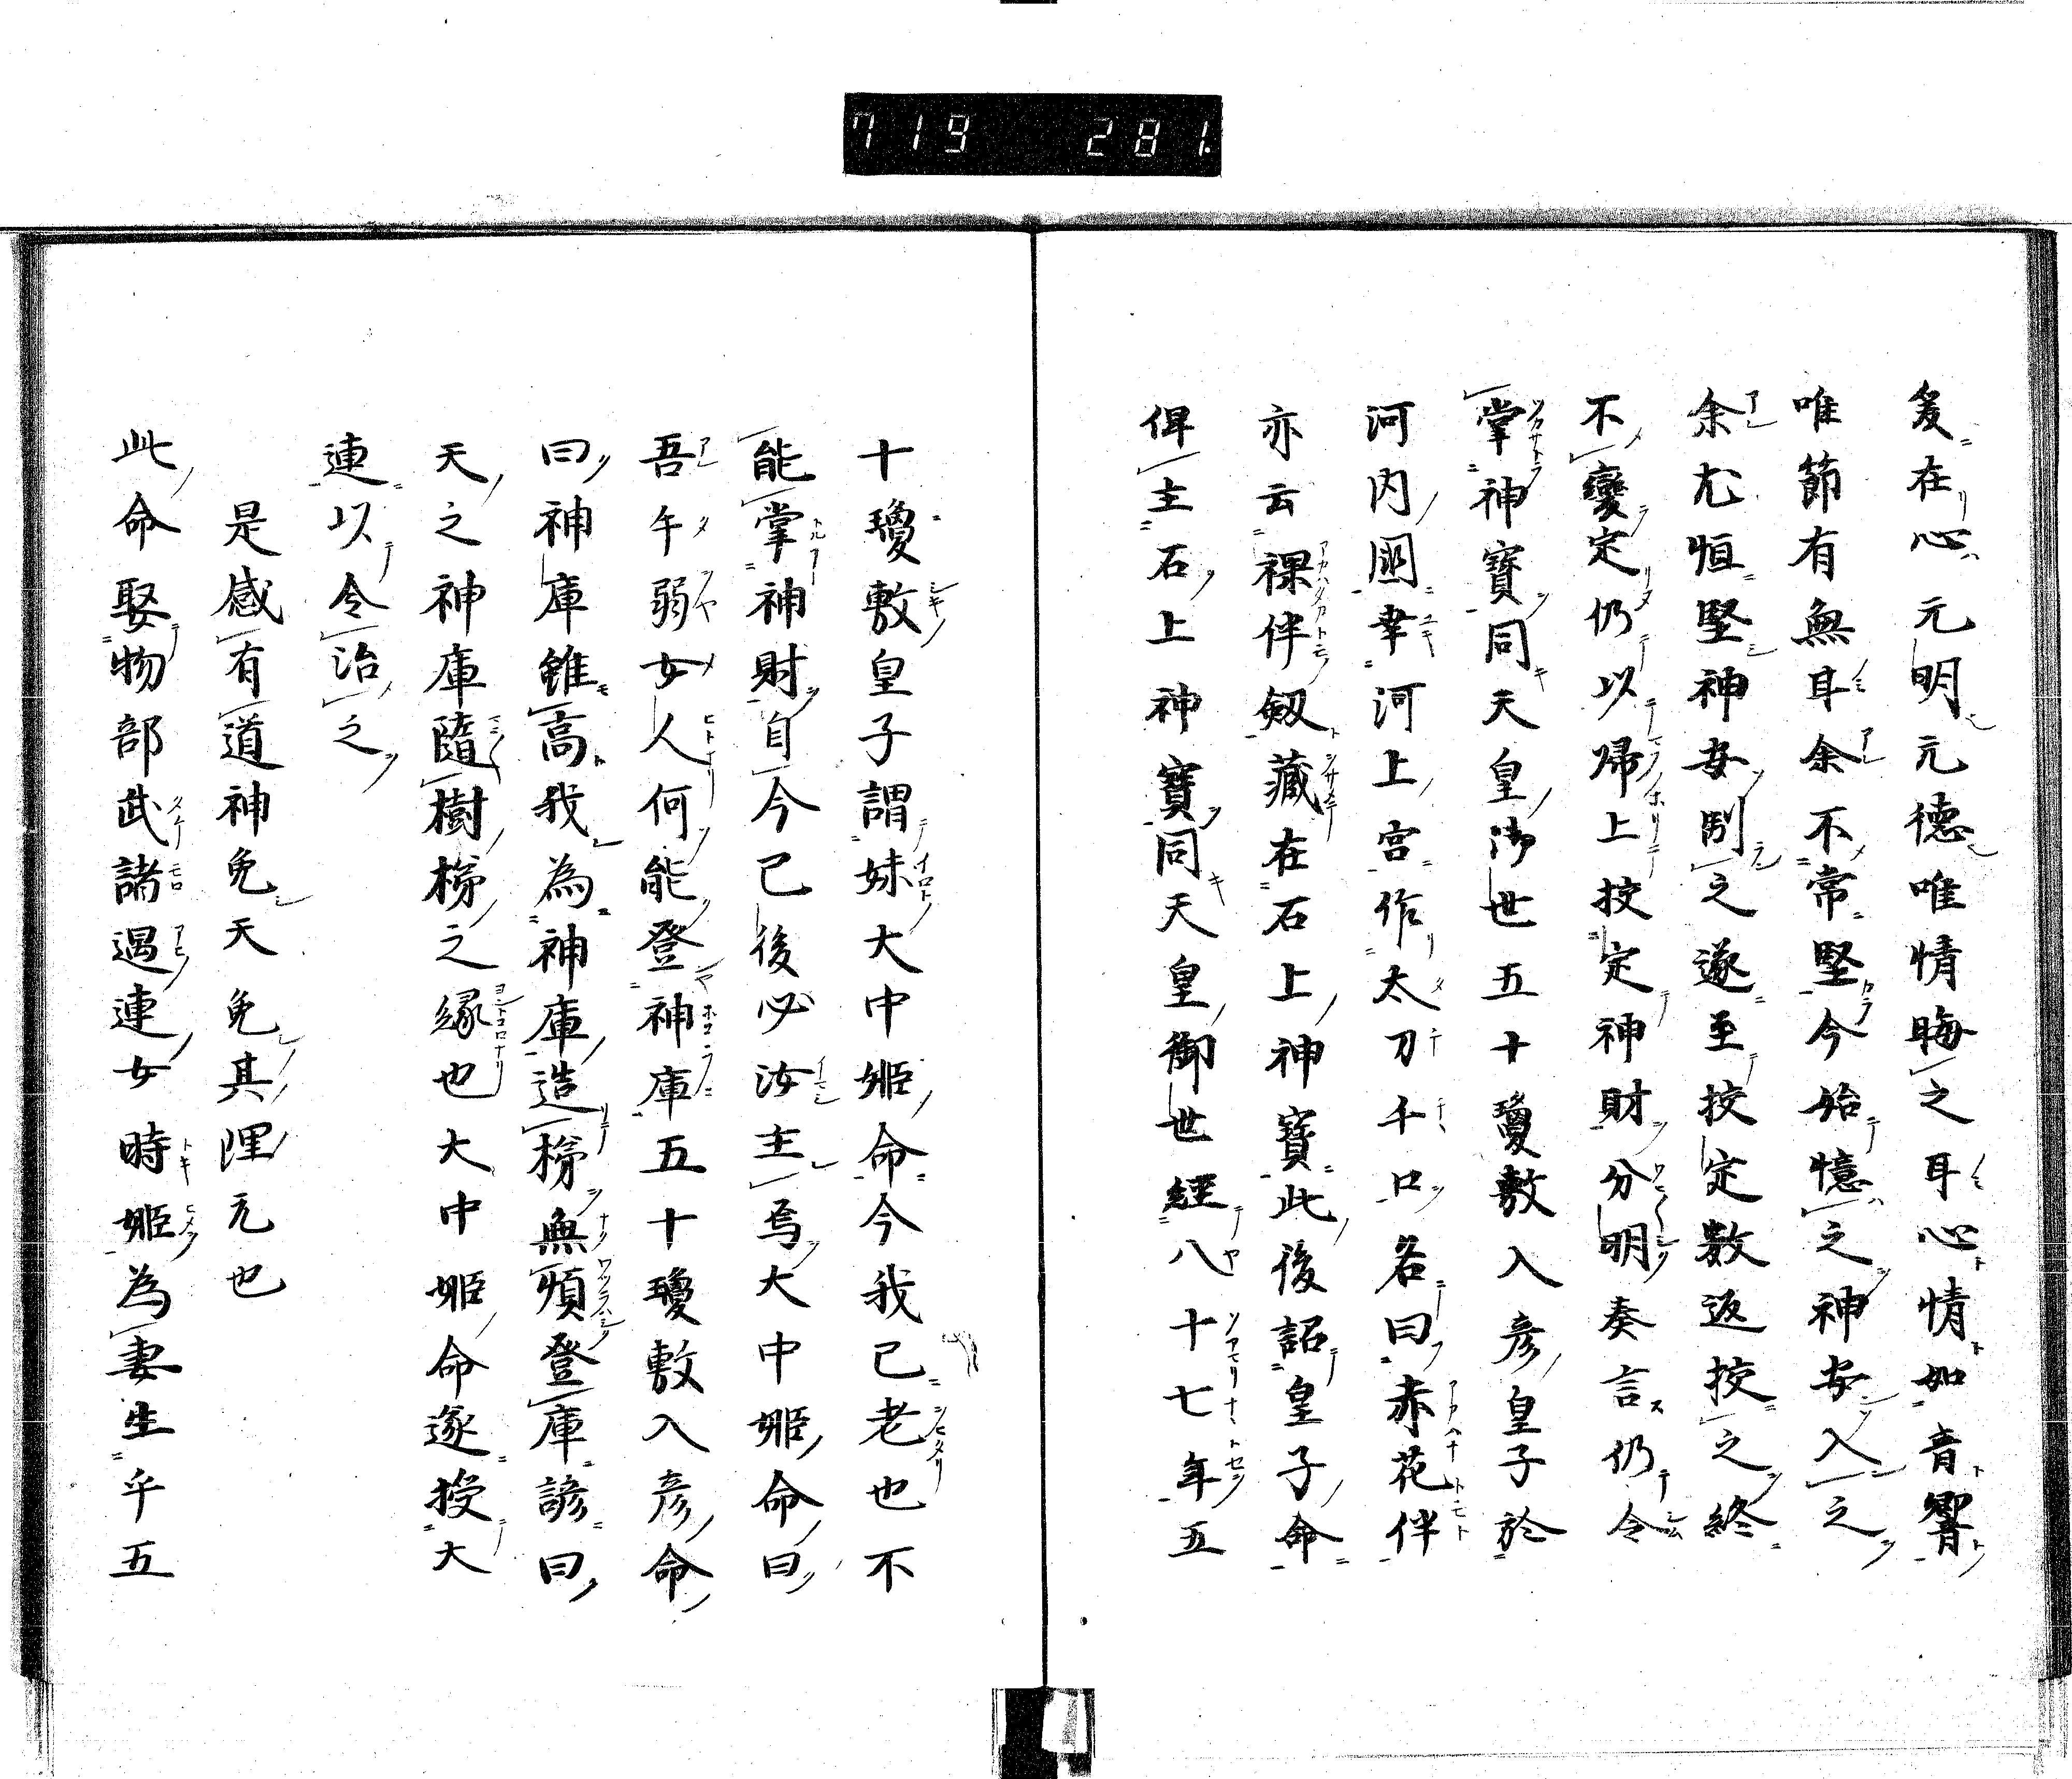 719 281.
爰在心元明元德唯情晦之耳心情如音響
唯節有無耳余不常堅今始憶之神安入之
余尤恒堅神安別之遂至挍定數返挍之終
不變定仍以歸上挍定神財分明奏言仍令
掌神寶同天皇御世五十瓊敷入彦皇子於
河内國幸河上宮作太刀千口名曰赤花伴
亦云裸伴劔藏在石上神寶此後詔皇子命
俾主石上神寶同天皇御世經八十七年五
十瓊敷皇子謂妹大中姫命今我已老也不
能掌神財自今已後必汝主焉大中姫命曰
吾手弱女人何能登神庫五十瓊敷入彦命
曰神庫雖高我為神庫造梯無煩登庫諺曰
天之神庫隨樹梯之縁也大中姫命遂授大
連以令治之
是感有道神免天免其理元也
此命娶物部武諸遇連女時姫為妻生乎五